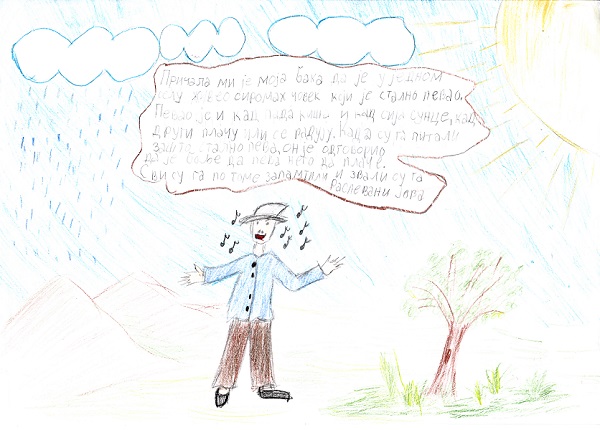 Причала ми је моја бака да је у једном
селу живео сиромах човек који је стално певао.
Певао је и кад пада киша и кад сија сунце, кад
други плачу или се радују. Када су га питали
зашто стално пева, он је одговорио
да је боље да пева него да плаче.
Сви су га по томе запамтили и звали су га
Распевани Јова